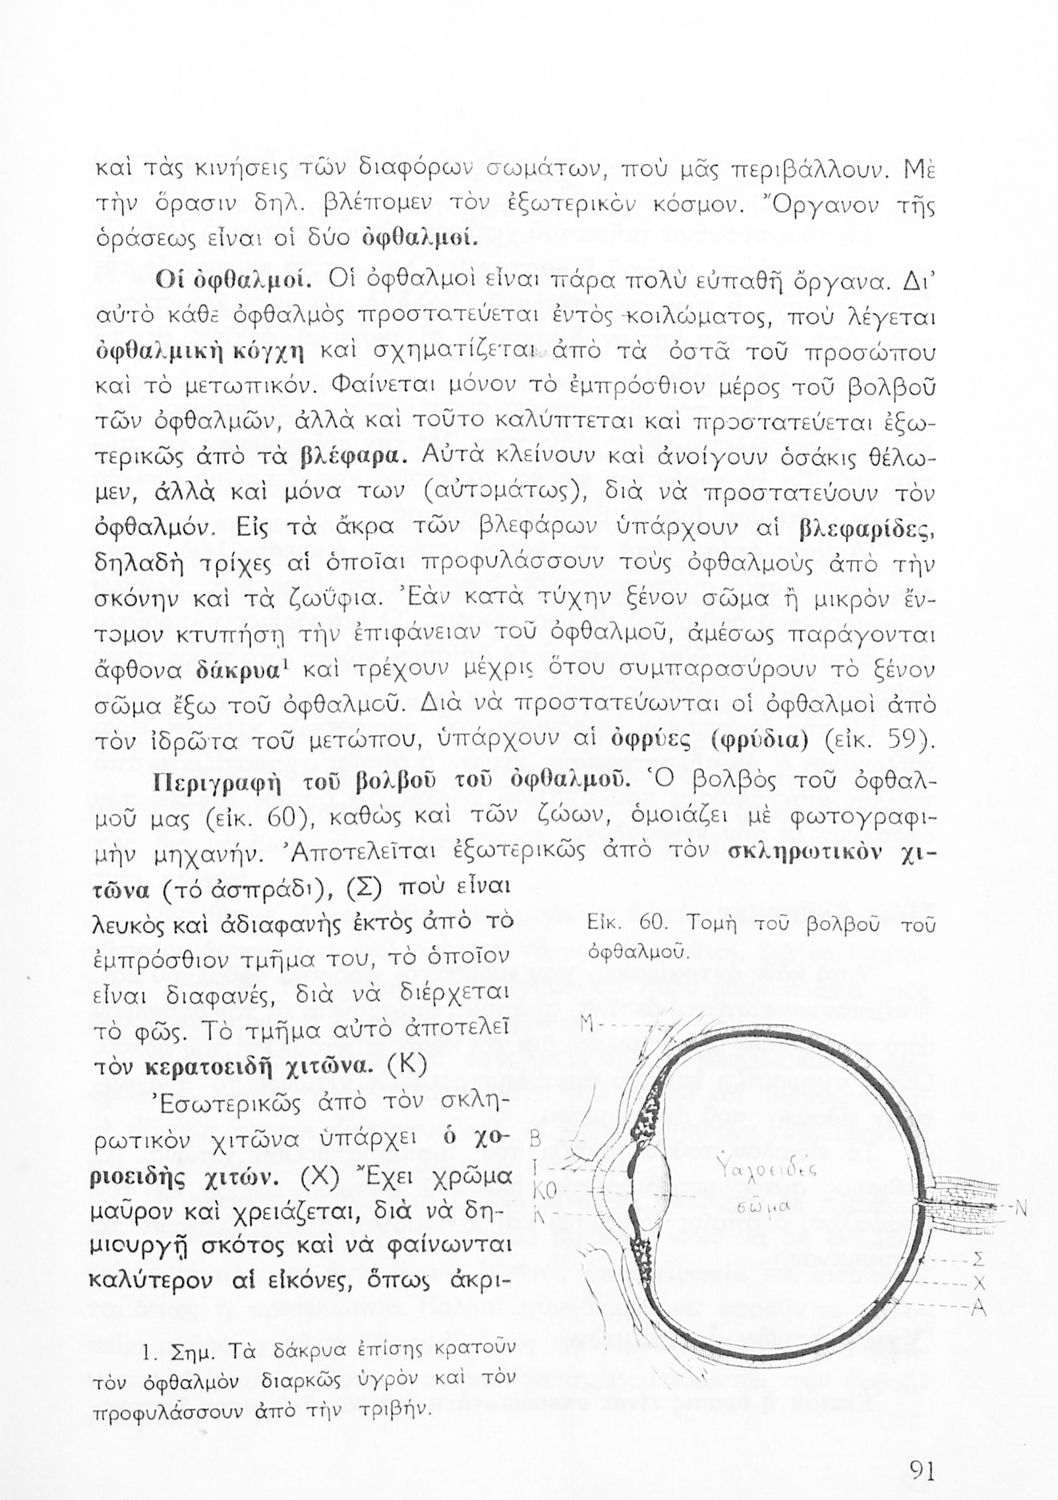 καὶ τὰς κινήσεις τῶν διαφόρων σωμάτων, ποὺ μᾶς περιβάλλουν. Μὲ
τὴν ὅρασιν δηλ. βλέπομεν τὸν ἐξωτερικὸν κόσμον. Ὄργανον τῆς
ὁράσεως εἶναι οἱ δύο ὀφθαλμοί.
Οἱ ὀφθαλμοί. Οἱ ὀφθαλμοὶ εἶναι πάρα πολὺ εὐπαθῆ ὄργανα. Δι’
αὐτὸ κάθε ὀφθαλμὸς προστατεύεται ἐντὸς κοιλώματος, ποὺ λέγεται
ὀφθαλμικὴ κόγχη καὶ σχηματίζεται ἀπὸ τὰ ὀστᾶ τοῦ προσώπου
καὶ τὸ μετωπικόν. Φαίνεται μόνον τὸ ἐμπρόσθιον μέρος τοῦ βολβοῦ
τῶν ὀφθαλμῶν, ἀλλὰ καὶ τοῦτο καλύπτεται καὶ προστατεύεται ἐξω-
τερικῶς ἀπὸ τὰ βλέφαρα. Αὐτὰ κλείνουν καὶ ἀνοίγουν ὁσάκις θέλω-
μεν, ἀλλὰ καὶ μόνα των (αὐτομάτως), διὰ νὰ προστατεύουν τὸν
ὀφθαλμόν. Εἰς τὰ ἄκρα τῶν βλεφάρων ὑπάρχουν αἱ βλεφαρίδες,
δηλαδὴ τρίχες αἱ ὁποῖαι προφυλάσσουν τοὺς ὀφθαλμοὺς ἀπὸ τὴν
σκόνην καὶ τὰ ζωΰφια. Ἐὰν κατὰ τύχην ξένον σῶμα ἢ μικρὸν ἔν-
τομον κτυπήσῃ τὴν ἐπιφάνειαν τοῦ ὀφθαλμοῦ, ἀμέσως παράγονται
ἄφθονα δάκρυα¹ καὶ τρέχουν μέχρις ὅτου συμπαρασύρουν τὸ ξένον
σῶμα ἔξω τοῦ ὀφθαλμοῦ. Διὰ νὰ προστατεύωνται οἱ ὀφθαλμοὶ ἀπὸ
τὸν ἱδρῶτα τοῦ μετώπου, ὑπάρχουν αἱ ὀφρύες (φρύδια) (εἰκ. 59).
Περιγραφὴ τοῦ βολβοῦ τοῦ ὀφθαλμοῦ. Ὁ βολβὸς τοῦ ὀφθαλ-
μοῦ μας (εἰκ. 60), καθὼς καὶ τῶν ζώων, ὁμοιάζει μὲ φωτογραφι-
μὴν μηχανήν. Ἀποτελεῖται ἐξωτερικῶς ἀπὸ τὸν σκληρωτικὸν χι-
τῶνα (τό ἀσπράδι), (Σ) ποὺ εἶναι
λευκὸς καὶ ἀδιαφανὴς ἐκτὸς ἀπὸ τὸ
ἐμπρόσθιον τμῆμα του, τὸ ὁποῖον
εἶναι διαφανές, διὰ νὰ διέρχεται
τὸ φῶς. Τὸ τμῆμα αὐτὸ ἀποτελεῖ
τὸν κερατοειδῆ χιτῶνα. (Κ)
Ἐσωτερικῶς ἀπὸ τὸν σκλη-
ρωτικὸν χιτῶνα ὑπάρχει ὁ χο-
ριοειδὴς χιτών. (Χ) Ἔχει χρῶμα
μαῦρον καὶ χρειάζεται, διὰ νὰ δη-
μιουργῇ σκότος καὶ νὰ φαίνωνται
καλύτερον αἱ εἰκόνες, ὅπως ἀκρι-
1. Σημ. Τὰ δάκρυα ἐπίσης κρατοῦν
τὸν ὀφθαλμὸν διαρκῶς ὑγρὸν καὶ τὸν
προφυλάσσουν ἀπὸ τὴν τριβήν.
Εἰκ. 60. Τομὴ τοῦ βολβοῦ τοῦ
ὀφθαλμοῦ.
Μ
Β
Ι
ΚΟ
Κ
Υαλοειδὲς
σῶμα
Ν
Σ
Χ
Α
91